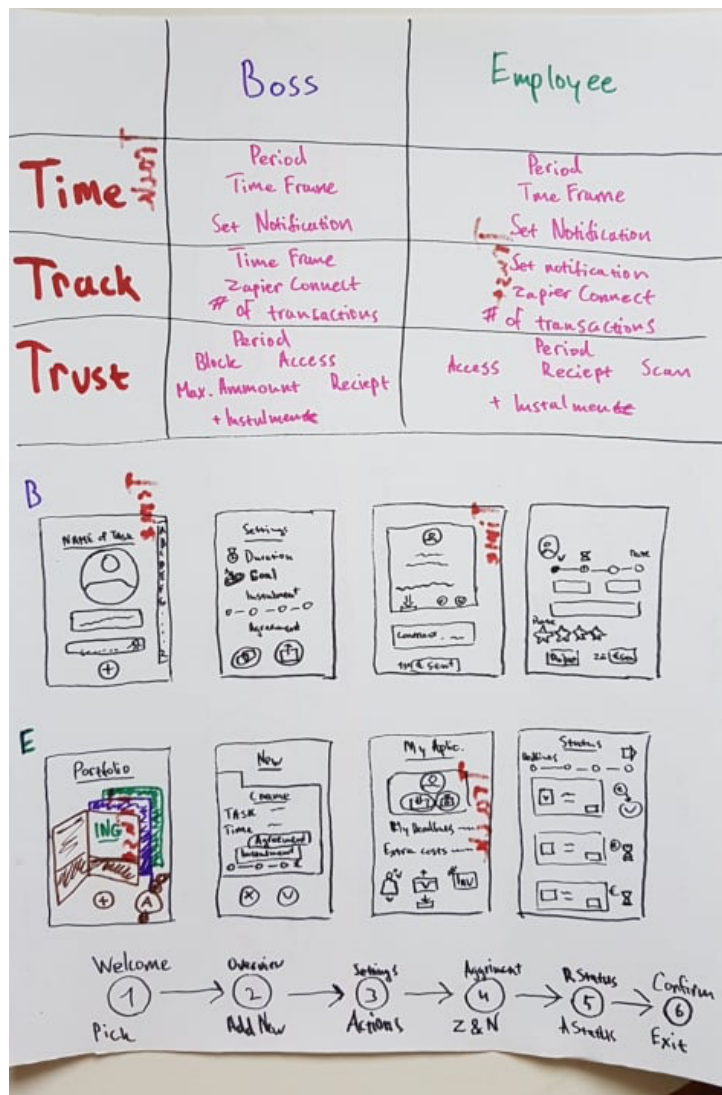 Boss Employee
Time
Period
Time Frame
Set Notification
Period
Tme Frame
Set Notification
Track
Time Frame
Zapier Connect
# of transactions
Set notification
Zapier Connect
# of transactions
Trust
Period
Block Access
Max. Ammount Reciept
Period
Access Reciept Scan
B
NAME of Task
Settings
Duration
Goal
Instalment
Agreement
E
Portfolio
ING
A
New
TASK
Time
Agreement
Instalment
My Aplic.
My Deadlines
Extra costs
Status
Deadlines
Welcome
1
Pick
Overview
2
Add New
Settings
3
Actions
Aggriment
4
Z & N
R Status
5
A Status
Confirm
6
Exit